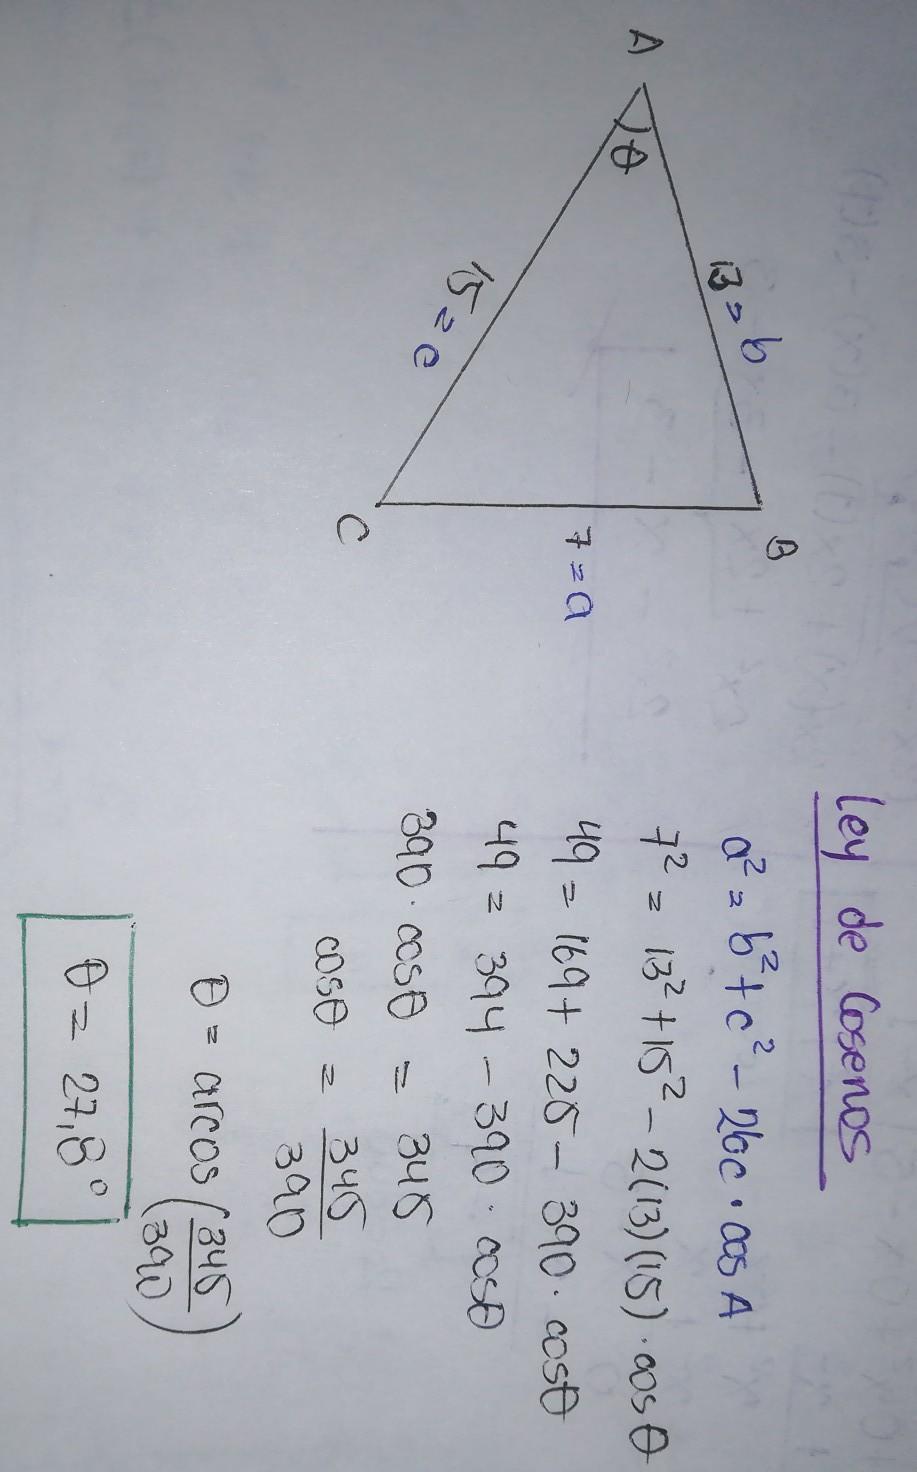 A
θ
13 = b
B
15 = c
7 = a
C
Ley de Cosenos
a² = b² + c² - 2bc · cos A
7² = 13² + 15² - 2(13)(15) · cos θ
49 = 169 + 225 - 390 · cosθ
49 = 394 - 390 · cosθ
390 · cosθ = 345
cosθ = 345/390
θ = arcos (345/390)
θ = 27,8°